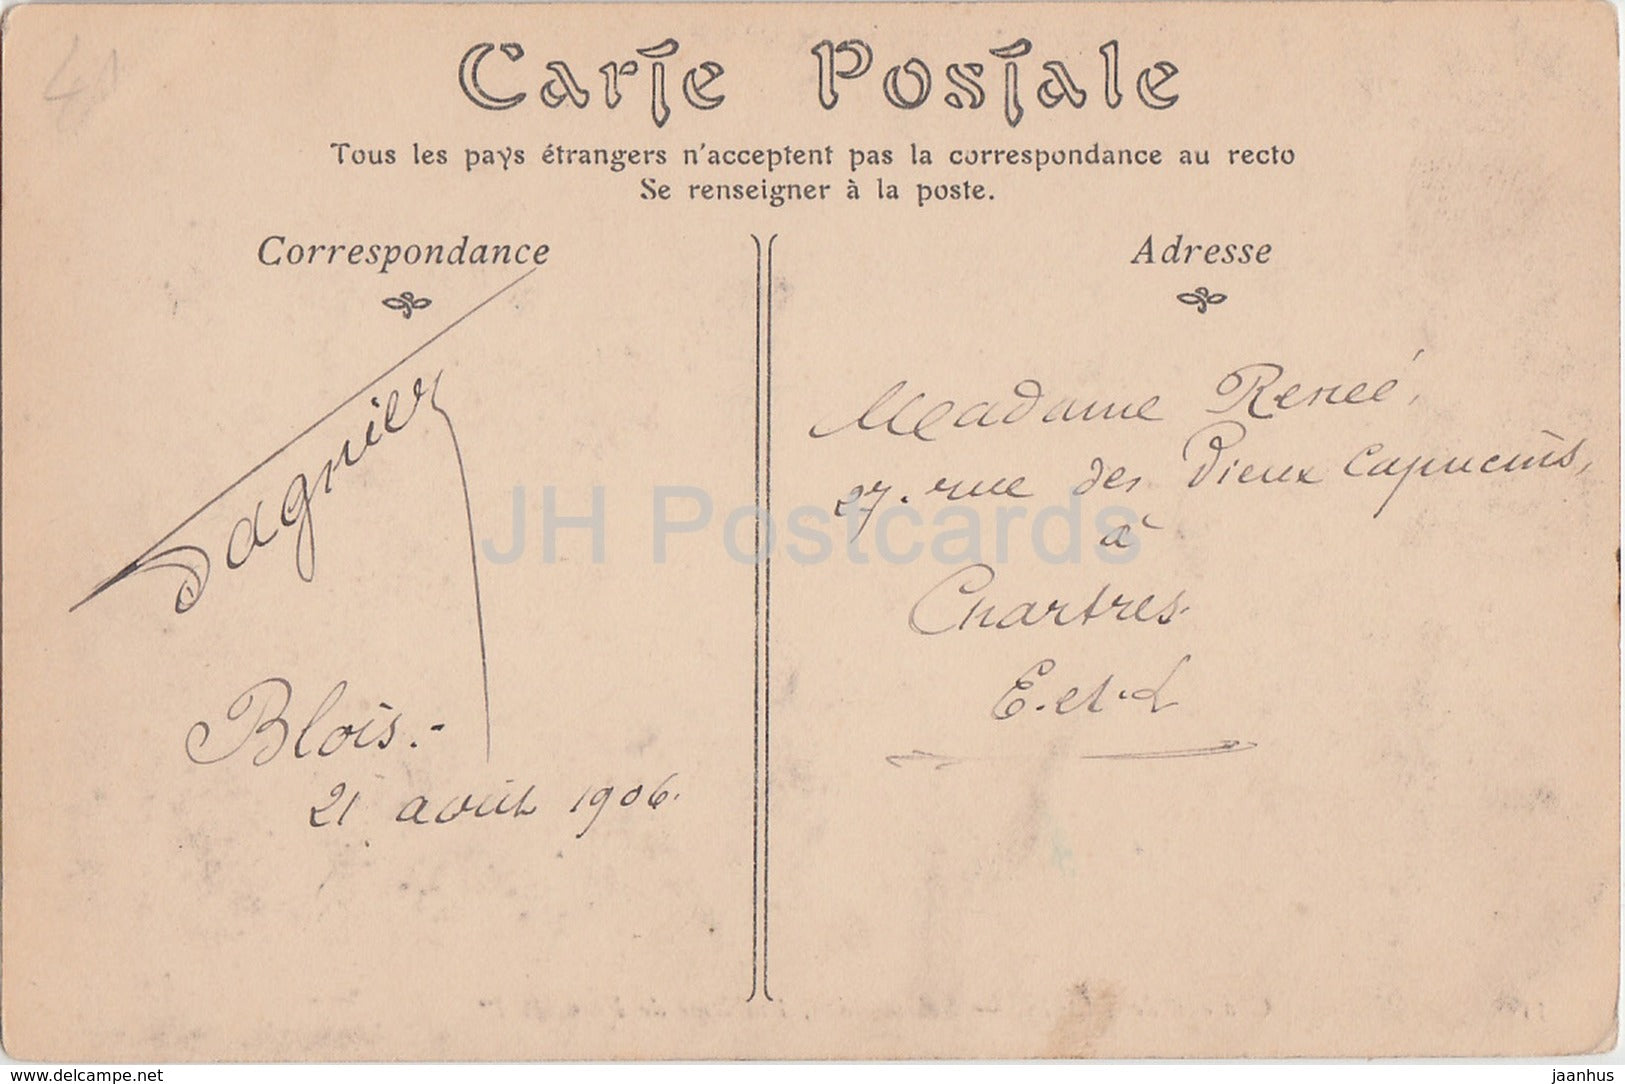 41
Carte Postale
Tous les pays étrangers n'acceptent pas la correspondance au recto
Se renseigner à la poste.
Correspondance
Dagnier
Blois.-
21 août 1906.
Adresse
Madame Reneé,
27. rue des Vieux Capucins,
à
Chartres.
E.-et-L
JH Postcards
www.delcampe.net
jaanhus